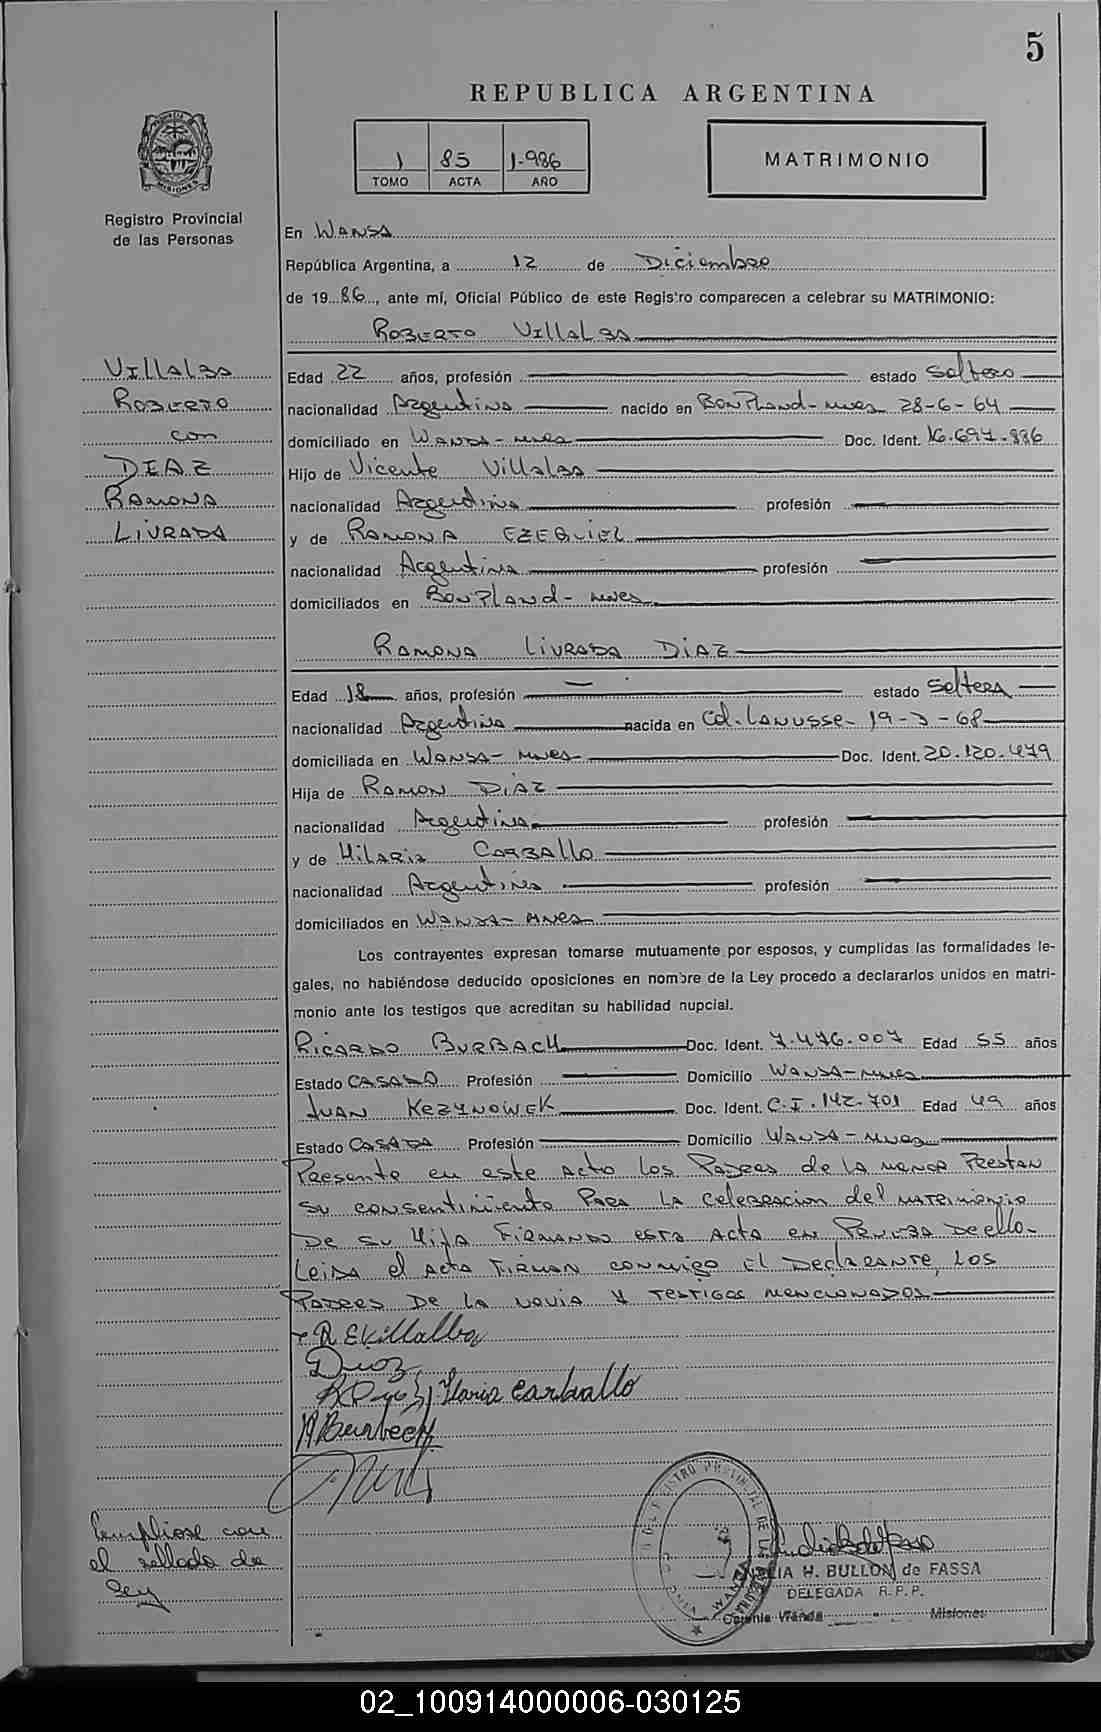 5
REPUBLICA ARGENTINA
1 85 1.986
TOMO ACTA AÑO
MATRIMONIO
PROVINCIA DE MISIONES
Registro Provincial
de las Personas
En WANDA
República Argentina, a 12 de Diciembre
de 19 86, ante mí, Oficial Público de este Registro comparecen a celebrar su MATRIMONIO:
ROBERTO VILLALBA
VILLALBA
ROBERTO
con
DIAZ
RAMONA
LIVRADA
Edad 22 años, profesión estado Soltero
nacionalidad Argentina nacido en BONPLAND-Mnes 28-6-64
domiciliado en WANDA-Mnes Doc. Ident. 16.697.886
Hijo de Vicente Villalba
nacionalidad Argentina profesión
y de RAMONA EZEQUIEL
nacionalidad Argentina profesión
domiciliados en BONPLAND-Mnes
RAMONA LIVRADA DIAZ
Edad 18 años, profesión estado SolteRA
nacionalidad Argentina nacida en Col. LANUSSE- 19-3-68
domiciliada en WANDA-Mnes Doc. Ident. 20.120.479
Hija de RAMON DIAZ
nacionalidad Argentina profesión
y de HILARIA CARBALLO
nacionalidad Argentina profesión
domiciliados en WANDA-Mnes
Los contrayentes expresan tomarse mutuamente por esposos, y cumplidas las formalidades le-
gales, no habiéndose deducido oposiciones en nombre de la Ley procedo a declararlos unidos en matri-
monio ante los testigos que acreditan su habilidad nupcial.
RICARDO BURBACH Doc. Ident. 7.476.007 Edad 55 años
Estado CASADO Profesión Domicilio WANDA-Mnes
JUAN KEZYNOWEK Doc. Ident. C.I. 142.701 Edad 49 años
Estado CASADA Profesión Domicilio WANDA-Mnes
Presente en este Acto los Padres de la menor Prestan
su consentimiento para la celebracion del matrimonio
De su Hija Firmando esta Acta en Prueba De ello-
Leida el Acta Firman conmigo El Declarante, Los
Padres De la novia y Testigos mencionados
R E Villalba
Diaz
R Diaz Ilaria Carballo
R Burbach
Cumpliose con
el sellado de
ley
REGISTRO PROVINCIAL DE LAS PERSONAS
WANDA
H. BULLON de FASSA
DELEGADA R.P.P.
Colonia Wanda Misiones
02_100914000006-030125